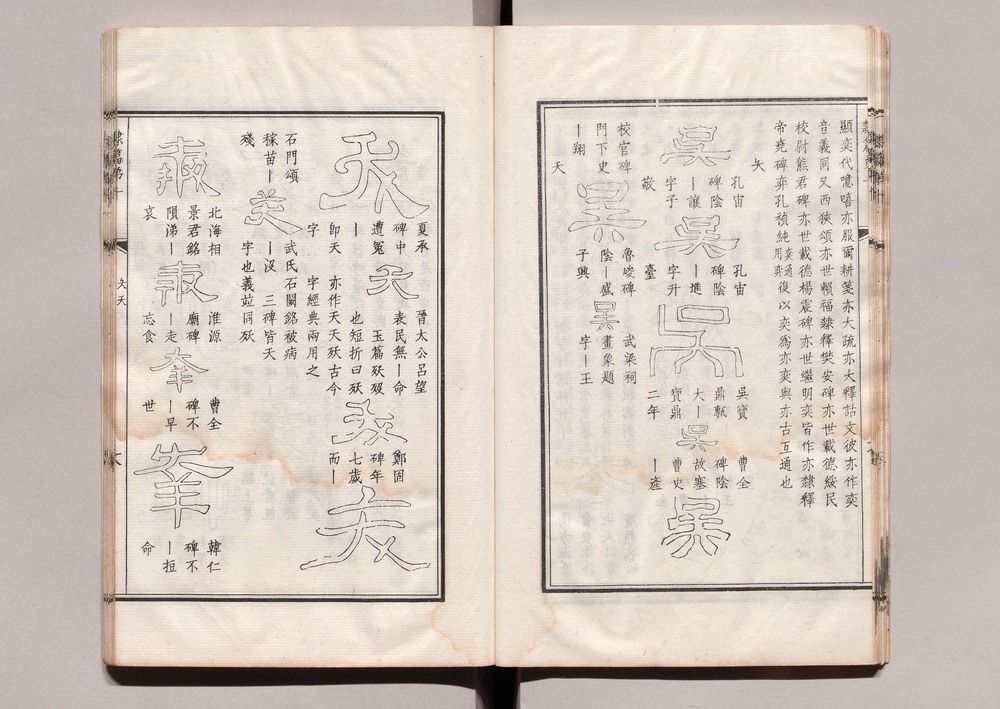 顯奕代噫嘻亦服爾耕箋亦大疏亦大釋詁文彼亦作奕
音義同又西狹頌亦世賴福隸釋樊安碑亦世載德綏民
校尉熊君碑亦世載德楊震碑亦世繼明奕皆作亦隸釋
帝堯碑弈孔禎純奕通用弈復以奕為亦奕與亦古互通也
夨
吳
孔宙
碑陰
丨讓
字子
敬
吳
孔宙
碑陰
丨進
字升
臺
吳
吳寶
鼎甎
大丨
寶鼎
二年
吳
曹全
碑陰
故塞
曹史
丨產
吳
校官碑
門下史
丨翔
吳
魯峻碑
陰丨盛
子興
吳
武梁祠
畫象題
字丨王
夭
夭
夏承
碑中
遭冤
丨
即夭
字
夭
晉太公呂望
表民無丨命
玉篇殀歿
也短折曰殀
亦作夭夭殀古今
字經典兩用之
鄭固
碑年
七歲
而丨
石門頌
稼苗丨
殘
武氏石闕銘被病
丨沒 三碑皆夭
字也義竝同殀
北海相
景君銘
隕涕丨
哀
淮源
廟碑
丨走
忘食
曹全
碑不
丨早
世
韓仁
碑不
丨𢮿
命
隸篇第十
夨夭